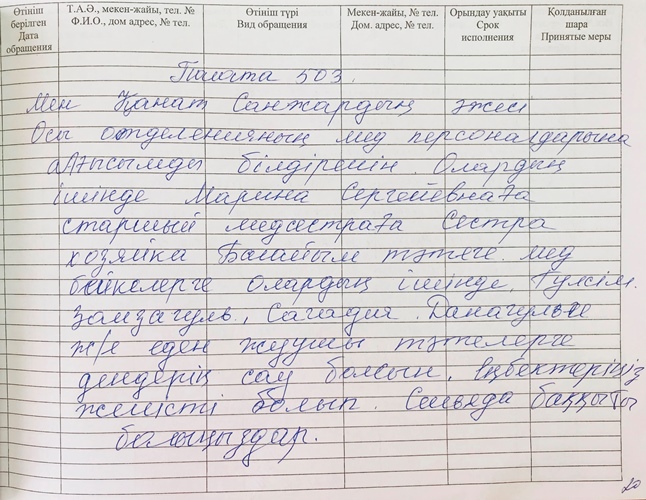 Өтініш берілген Дата обращения
Т.А.Ә., мекен-жайы, тел. № Ф.И.О., дом адрес, № тел.
Өтініш түрі Вид обращения
Мекен-жайы, № тел. Дом. адрес, № тел.
Орындау уақыты Срок исполнения
Қолданылған шара Принятые меры
Палата 503.
Мен Қанат Санжардың әжесі
Осы отделенияның мед персоналдарына
алғысымды білдіремін. Олардың
ішінде Марина Сергеевнаға
старший медсестраға Сестра
хозяйка Балайым тәтеге. мед
бейкелерге олардың ішінде, Гүлсім.
Замзагуль, Сагадия. Данагульге
ж/е еден жуушы тәтелерге
дендерің сау болсын. Еңбектеріңіз
жемісті болып. Сиьяда баққытты
болыңыздар.
20